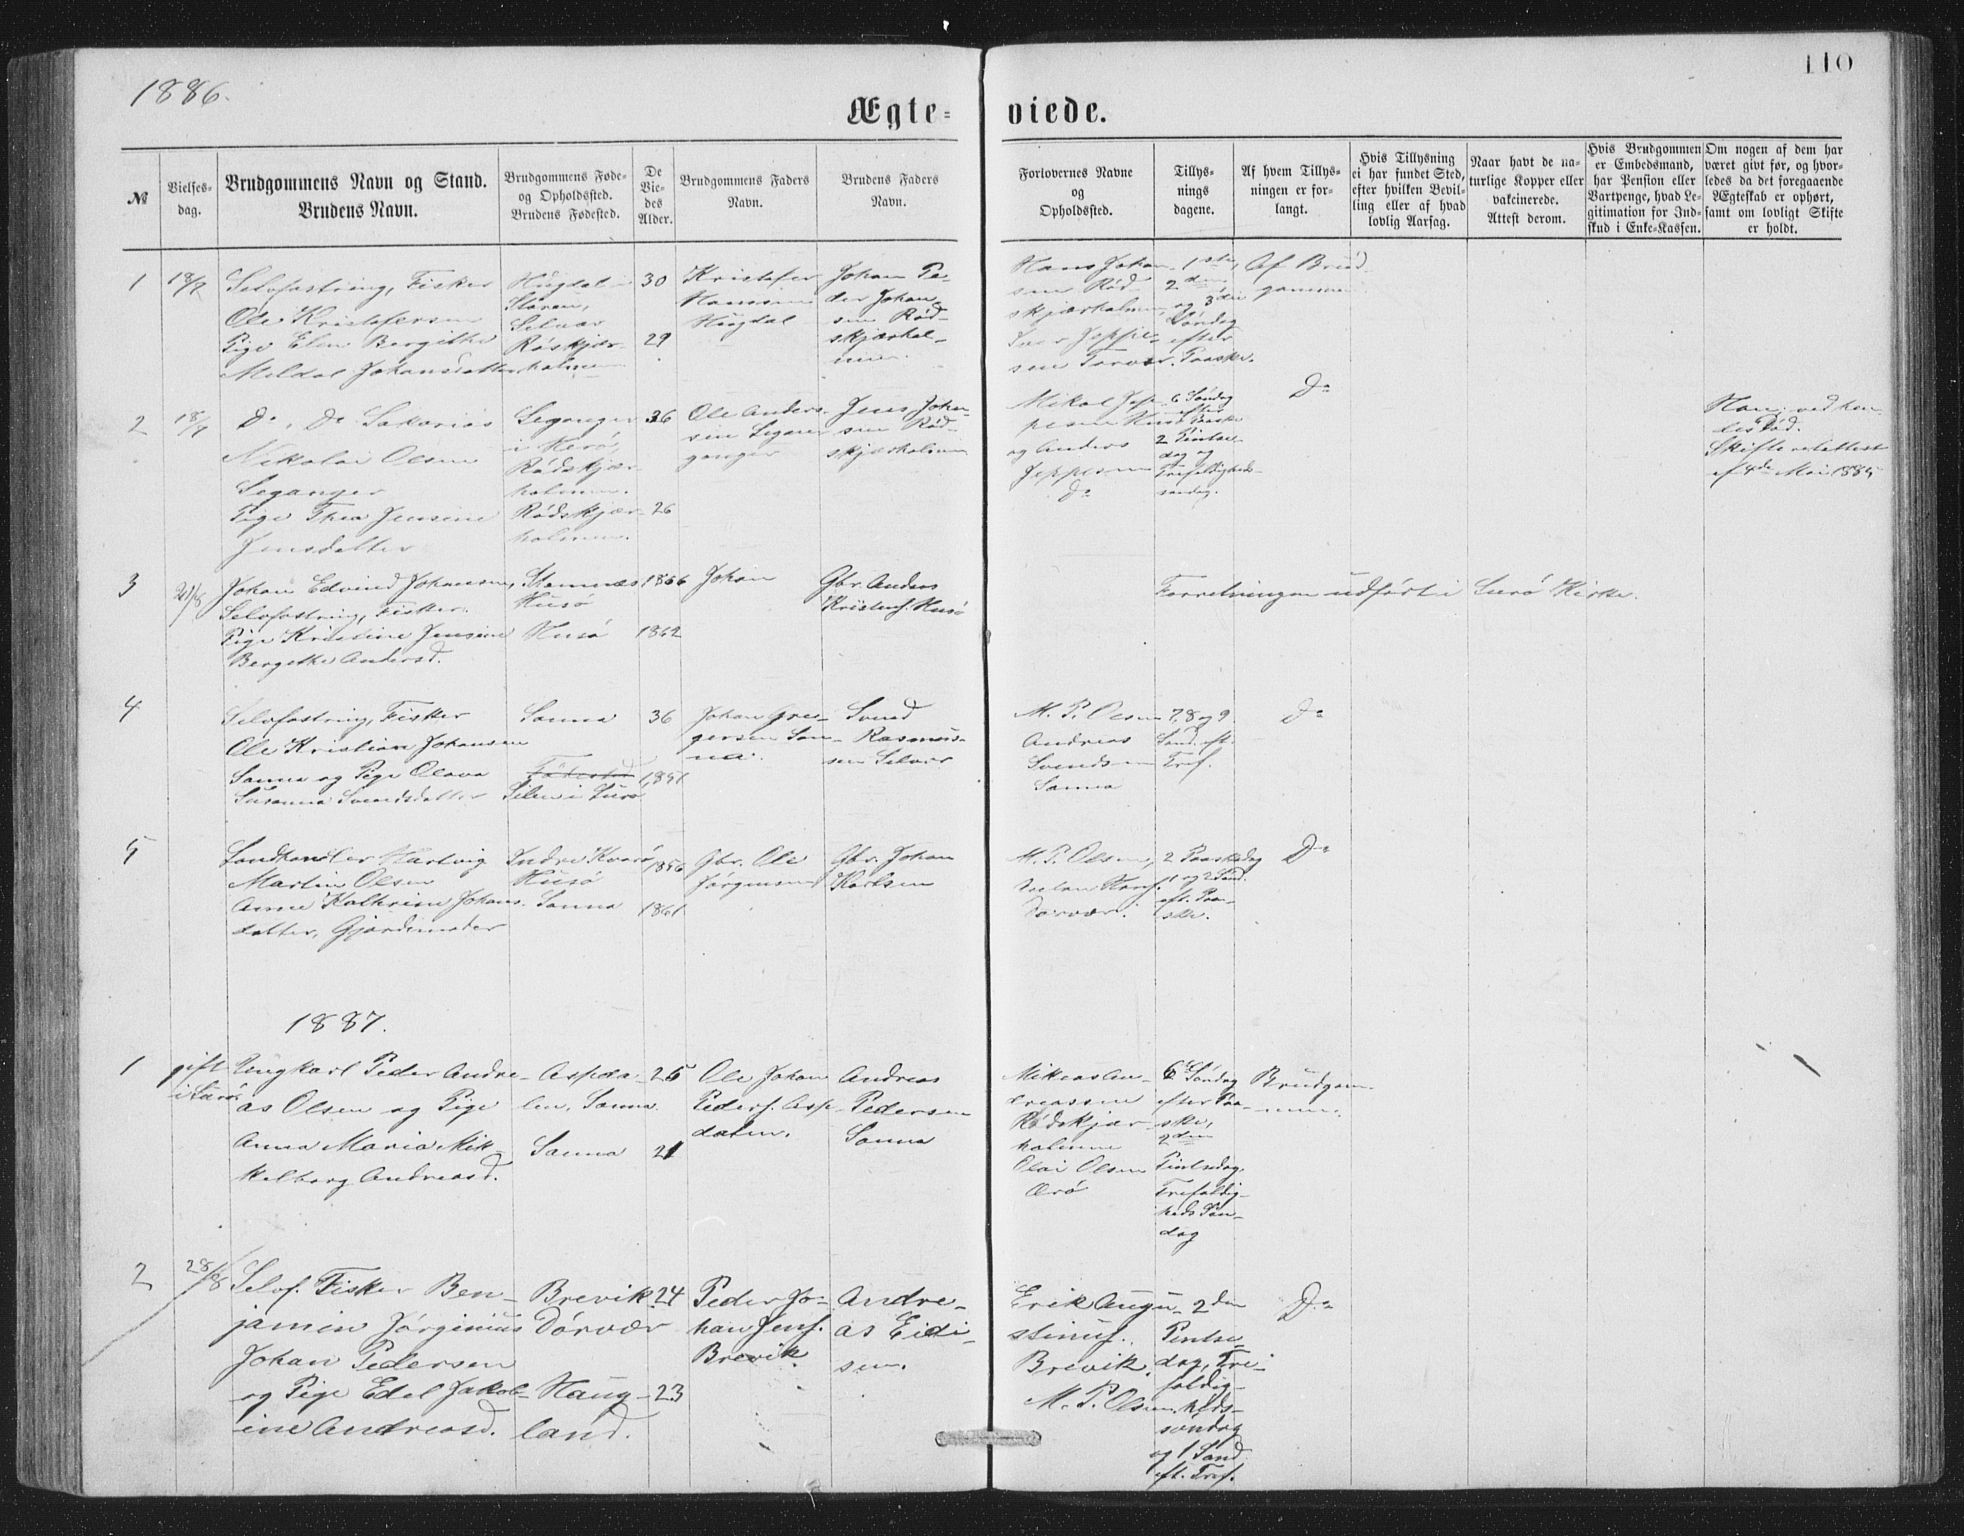 1886.
110
Ægte-
viede.
№
Vielses-
dag.
Brudgommens Navn og Stand.
Brudens Navn.
Brudgommens Føde-
og Opholdssted.
Brudens Fødested.
De
Vie-
des
Alder.
Brudgommens Faders
Navn.
Brudens Faders
Navn.
Forlovernes Navne
og
Opholdssted.
Tillys-
nings
dagene.
Af hvem Tillys-
ningen er for-
langt.
Hvis Tillysning
ei har fundet Sted,
efter hvilken Bevil-
ling eller af hvad
lovlig Aarsag.
Naar havt de na-
turlige Kopper eller
vakcinerede.
Attest derom.
Hvis Brudgommen
er Embedsmand,
har Pension eller
Vartpenge, hvad Le-
gitimation for Ind-
skud i Enke-Kassen.
Om nogen af dem har
været givt før, og hvor-
ledes da det foregaaende
Ægteskab er ophørt,
samt om lovligt Skifte
er holdt.
1
18/7
Selvfostring, Fisker
Ole Kristofersen
Pige Elen Bergithe
Meldal Johansdatter
Hugdal
Støren,
Selvær
Røskjær-
holmen
30
29
Kristofer
Hanssen
Hugdal
Johan Pe-
der Johan-
sen Rød-
skjærhol-
men.
Hans Johan-
sen Rød-
skjærholmen,
Jeppe-
sen Torvær.
1ste,
2den
og 3die
Søndag
efter
Paaske.
Af Brud-
gommen
2
18/7
Do, Do Sakarias
Nikolai Olsen
Leganger
Pige Thea Jensine
Jensdatter
Leganger
i Herø,
Rødskjær-
holmen.
Rødskjær-
holmen.
36
26
Ole Anders-
sen Legan-
ganger
Jens Johan-
sen Rød-
skjærholmen
Mikal Jep-
pesen Husø
og Anders
Jeppesen
Do
6 Søndag
efter
Paaske
2 Pintse-
dag og
Trefoldigheds-
søndag.
Do
Han; ved hen-
des Død.
Skifteretsattest
af 4de Mai 1885
3
21/8
Johan Edvind Johansen,
Selvfostring, Fisker.
Pige Kristine Jensine
Bergithe Andersd.
Stamnæs
Husø
Husø
1866
1862
Johan
Gbr. Anders
Kristens. Husø
Forretningen udført i Lurø Kirke.
4
Selvfostring, Fisker
Ole Kristian Johansen
Sanna og Pige Olava
Susanna Svendsdatter
Sanna
Fødested
Silen i Lurø
36
1851
Johan Gre-
gersen San-
na.
Svend
Rasmus-
sen Selvær
M. P. Olsen
Andreas
Svendsen
Sanna
7, 8 og 9.
Sønd. eft.
Tref.
Do
5
Landhandler Hartvig
Martin Olsen
Anne Kathrine Johans-
datter, Gjordemoder
Indre Kvarø
Husø
Sanna
1856
1861
Gbr. Ole
Jørgensen
Gbr. Johan
Karlsen
M. P. Olsen,
Dørvær.
2 Paaskedag
1 og 2 Sønd.
eft. Paa-
ske.
Do
1887.
1
gift
i Lurø
Ungkarl Peder Andre-
as Olsen og Pige
Anna Maria Mik-
kelborg Andreasd.
Aspda-
len, Sanna.
Sanna
25
21
Ole Johan
Peders. Asp-
dalen.
Andreas
Pedersen
Sanna
Mikras An-
dreassen
Rødskjær-
holmen
Olai Olsen
Ærø
6te Søndag
efter Paa-
ske,
2den
Pintsedag.
Trefoldig-
heds Søn-
dag
Brudgom-
men.
2
28/8
Selvf. Fisker Ben-
jamin Jørginius
Johan Pedersen
og Pige Edel Jakob-
ine Andreasd.
Brevik
Dørvær
Haug-
land.
24
23
Peder Jo-
han Jens.
Brevik
Andre-
as Eidi-
sen.
Erik Augu-
stinus.
Brevik.
M. P. Olsen.
2den
Pentse-
dag, Tre-
foldig-
heds-
søndag
og 1 Sønd.
eft. Tref.
Do